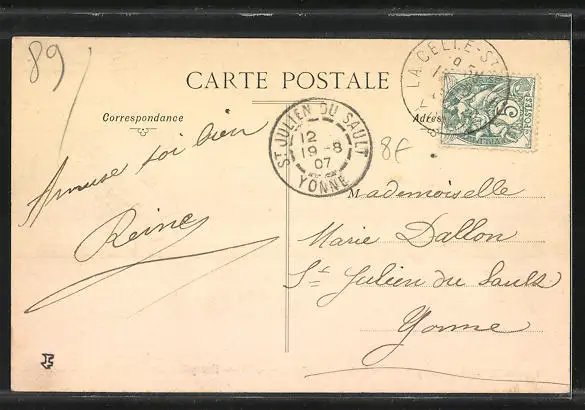 89
CARTE POSTALE
Correspondance
Adres
LA CELLE-ST
5
POSTES
ST JULIEN DU SAULT
12
19-8
07
YONNE
8f
Amuse toi bien
Reine
Mademoiselle
Marie Dallon
St Julien du Sault
Yonne